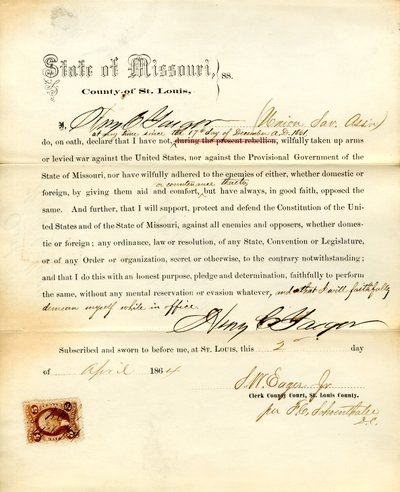 State of Missouri,
County of St. Louis,
ss.
I, Henry C. Yaeger (Union Sav. Assn)
at any time since the 17th day of December A.D. 1861,
do, on oath, declare that I have not, during the present rebellion, wilfully taken up arms
or levied war against the United States, nor against the Provisional Government of the
State of Missouri, nor have wilfully adhered to the enemies of either, whether domestic
or countenance thereto
or foreign, by giving them aid and comfort, but have always, in good faith, opposed the
same. And further, that I will support, protect and defend the Constitution of the Uni-
ted States and of the State of Missouri, against all enemies and opposers, whether domes-
tic or foreign; any ordinance, law or resolution, of any State, Convention or Legislature,
or of any Order or organization, secret or otherwise, to the contrary notwithstanding;
and that I do this with an honest purpose, pledge and determination, faithfully to perform
the same, without any mental reservation or evasion whatever, and that I will faithfully
demean myself while in office.
Henry C. Yaeger
Subscribed and sworn to before me, at St. Louis, this 2 day
of April 1864
S. W. Eager Jr.
Clerk County Court, St. Louis County.
per
D.C.